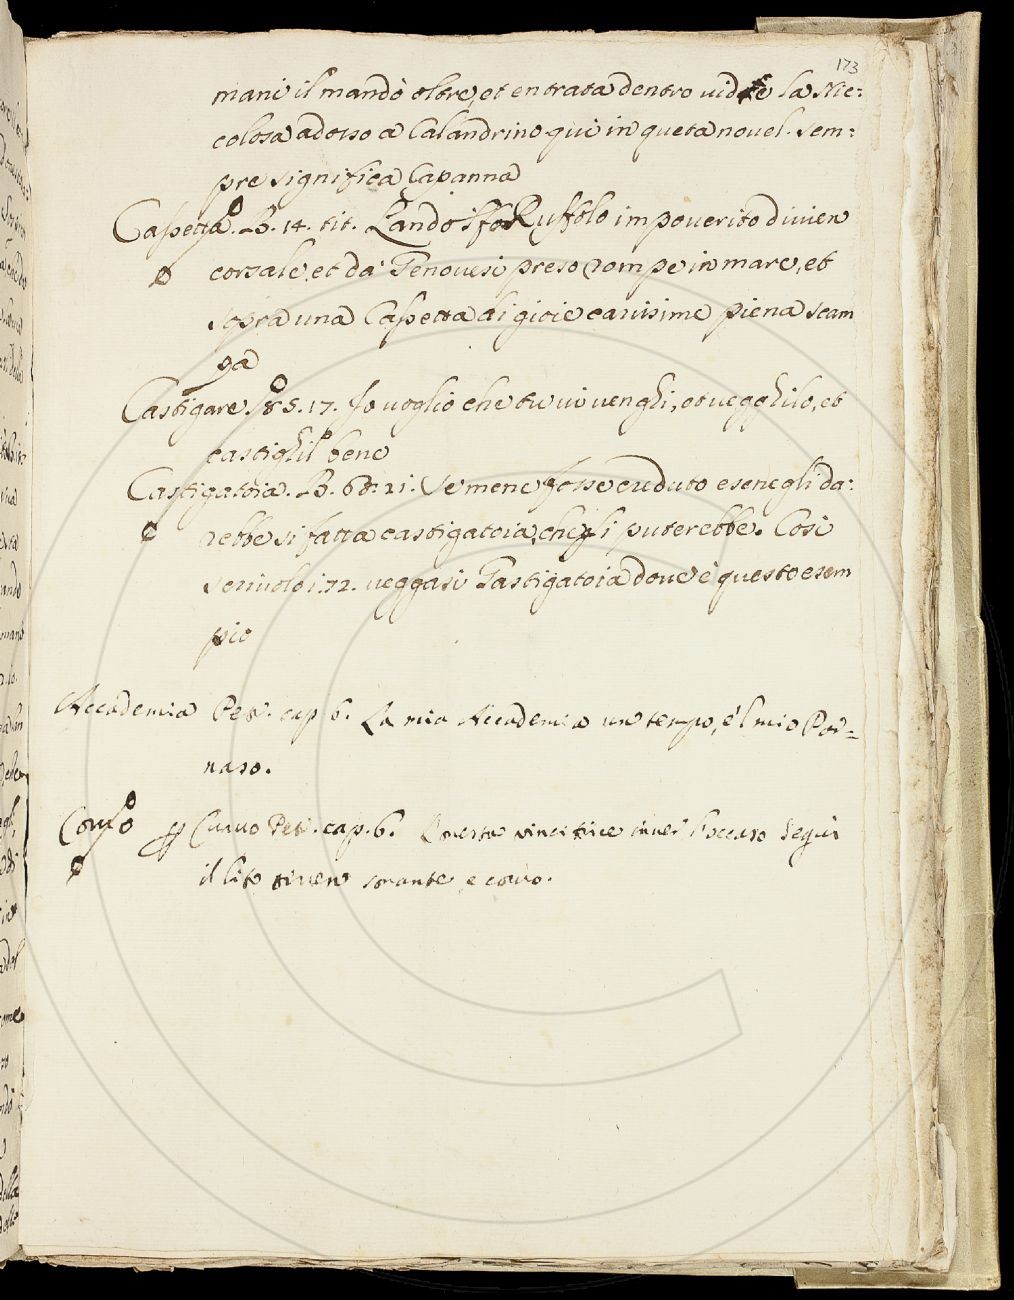 173
mani il mandò oltre, et entrata dentro vidde la Nic-
colosa adosso a Calandrino qui in questa novel. sem-
pre significa Capanna
Cassetta. B. 14. tit. Landolfo Ruffolo impoverito divien
corsale, et da Genovesi preso rompe in mare, et
sopra una Cassetta di gioie carissime piena scam
pa
Castigare. 85. 17. Io voglio che tu vi venghi, et vegghilo, et
castighil bene
Castigatoia. B. 68. 21. Se mene fosse creduto e sene gli da-
rebbe si fatta castigatoia, che gli puterebbe. Cosi
veggasi Gastigatoia dove è questo esem
pio
Accademia Pet. cap 6. La mia Accademia un tempo, e'l mio Par-
naso.
Corvo Curvo Pet. cap. 6. Questa vincitrice inver l'occaso segui
il lito sonante e corvo.